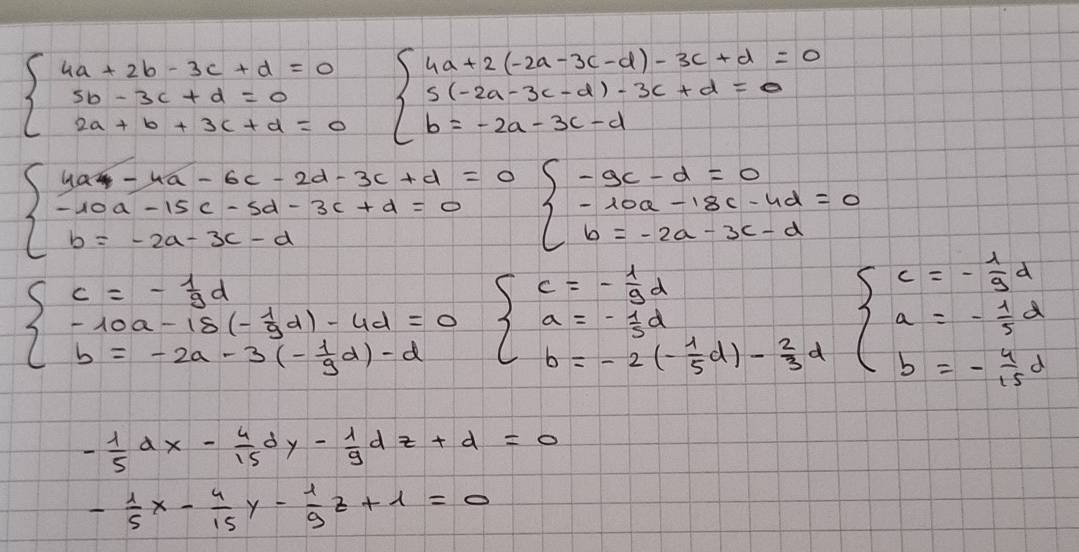 4a + 2b - 3c + d = 0
5b - 3c + d = 0
2a + b + 3c + d = 0
4a + 2(-2a - 3c - d) - 3c + d = 0
5(-2a - 3c - d) - 3c + d = 0
b = -2a - 3c - d
4a - 4a - 6c - 2d - 3c + d = 0
-10a - 15c - 5d - 3c + d = 0
b = -2a - 3c - d
-9c - d = 0
-10a - 18c - 4d = 0
b = -2a - 3c - d
c = -1/9 d
-10a - 18(-1/9 d) - 4d = 0
b = -2a - 3(-1/9 d) - d
c = -1/9 d
a = -1/5 d
b = -2(-1/5 d) - 2/3 d
c = -1/9 d
a = -1/5 d
b = -4/15 d
-1/5 dx - 4/15 dy - 1/9 dz + d = 0
-1/5 x - 4/15 y - 1/9 z + 1 = 0